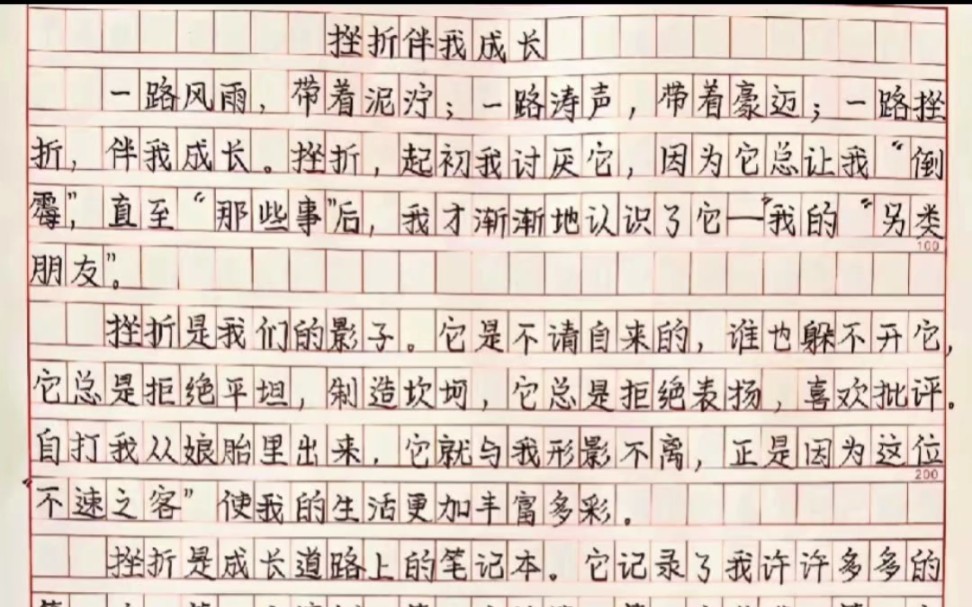 挫折伴我成长
一路风雨，带着泥泞；一路涛声，带着豪迈；一路挫
折，伴我成长。挫折，起初我讨厌它，因为它总让我“倒
霉”，直至“那些事”后，我才渐渐地认识了它—我的“另类
100
朋友”。
挫折是我们的影子。它是不请自来的，谁也躲不开它，
它总是拒绝平坦，制造坎坷，它总是拒绝表扬，喜欢批评。
自打我从娘胎里出来，它就与我形影不离，正是因为这位
200
“不速之客”使我的生活更加丰富多彩。
挫折是成长道路上的笔记本。它记录了我许许多多的